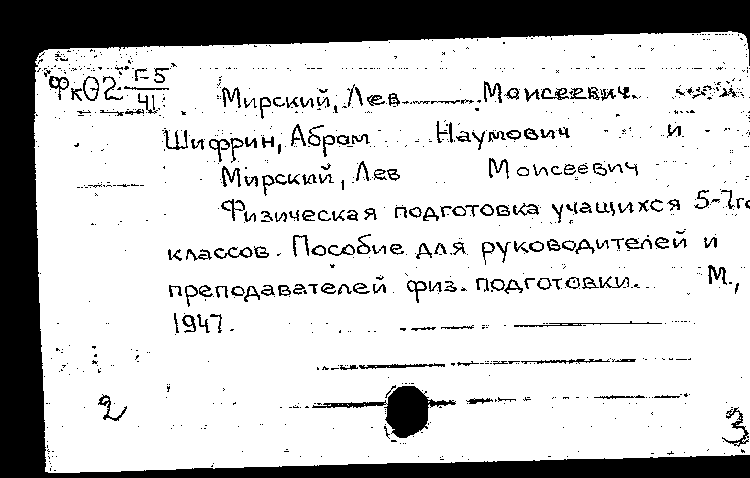 Фк02 Г-5/41
Мирский, Лев Моисеевич.
Шифрин, Абрам Наумович и
Мирский, Лев Моисеевич
Физическая подготовка учащихся 5-7го
классов. Пособие для руководителей и
преподавателей физ. подготовки. М.,
1947.
2
3